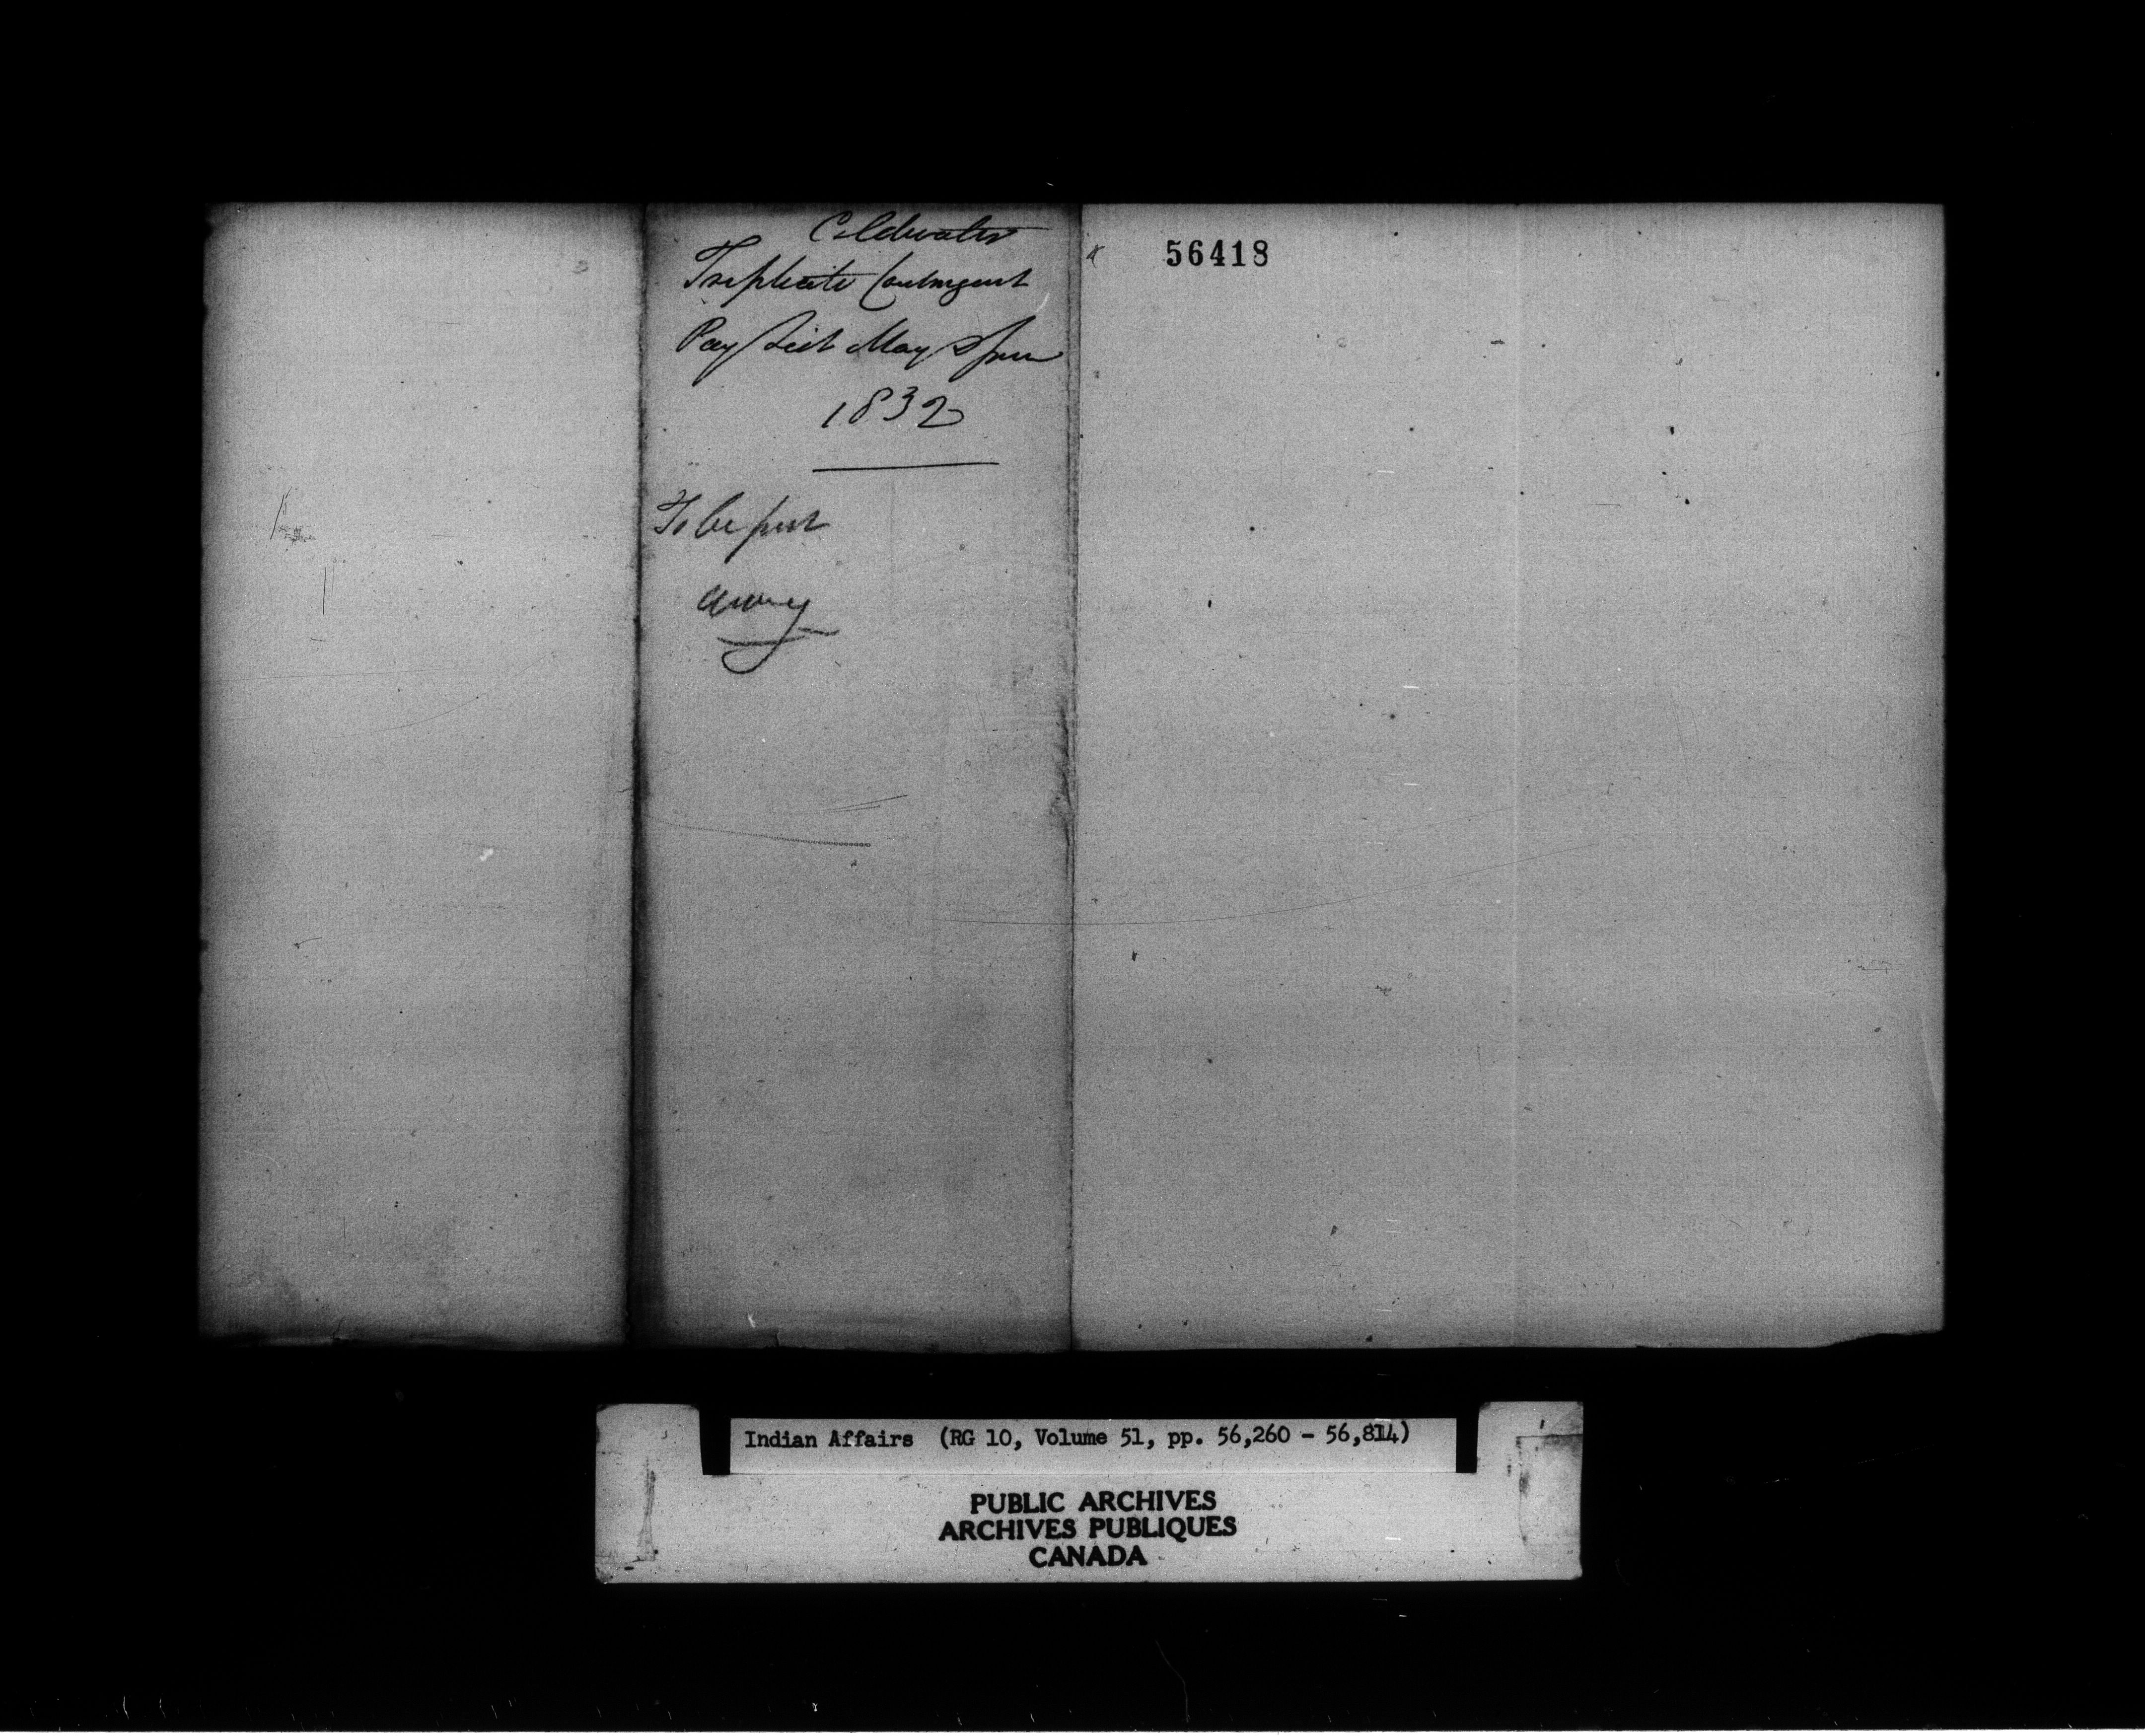 Coldwater
Triplicate Contingent
Pay List May & June
1832
To be put
away
56418
Indian Affairs (RG 10, Volume 51, pp. 56,260 - 56,814)
PUBLIC ARCHIVES
ARCHIVES PUBLIQUES
CANADA